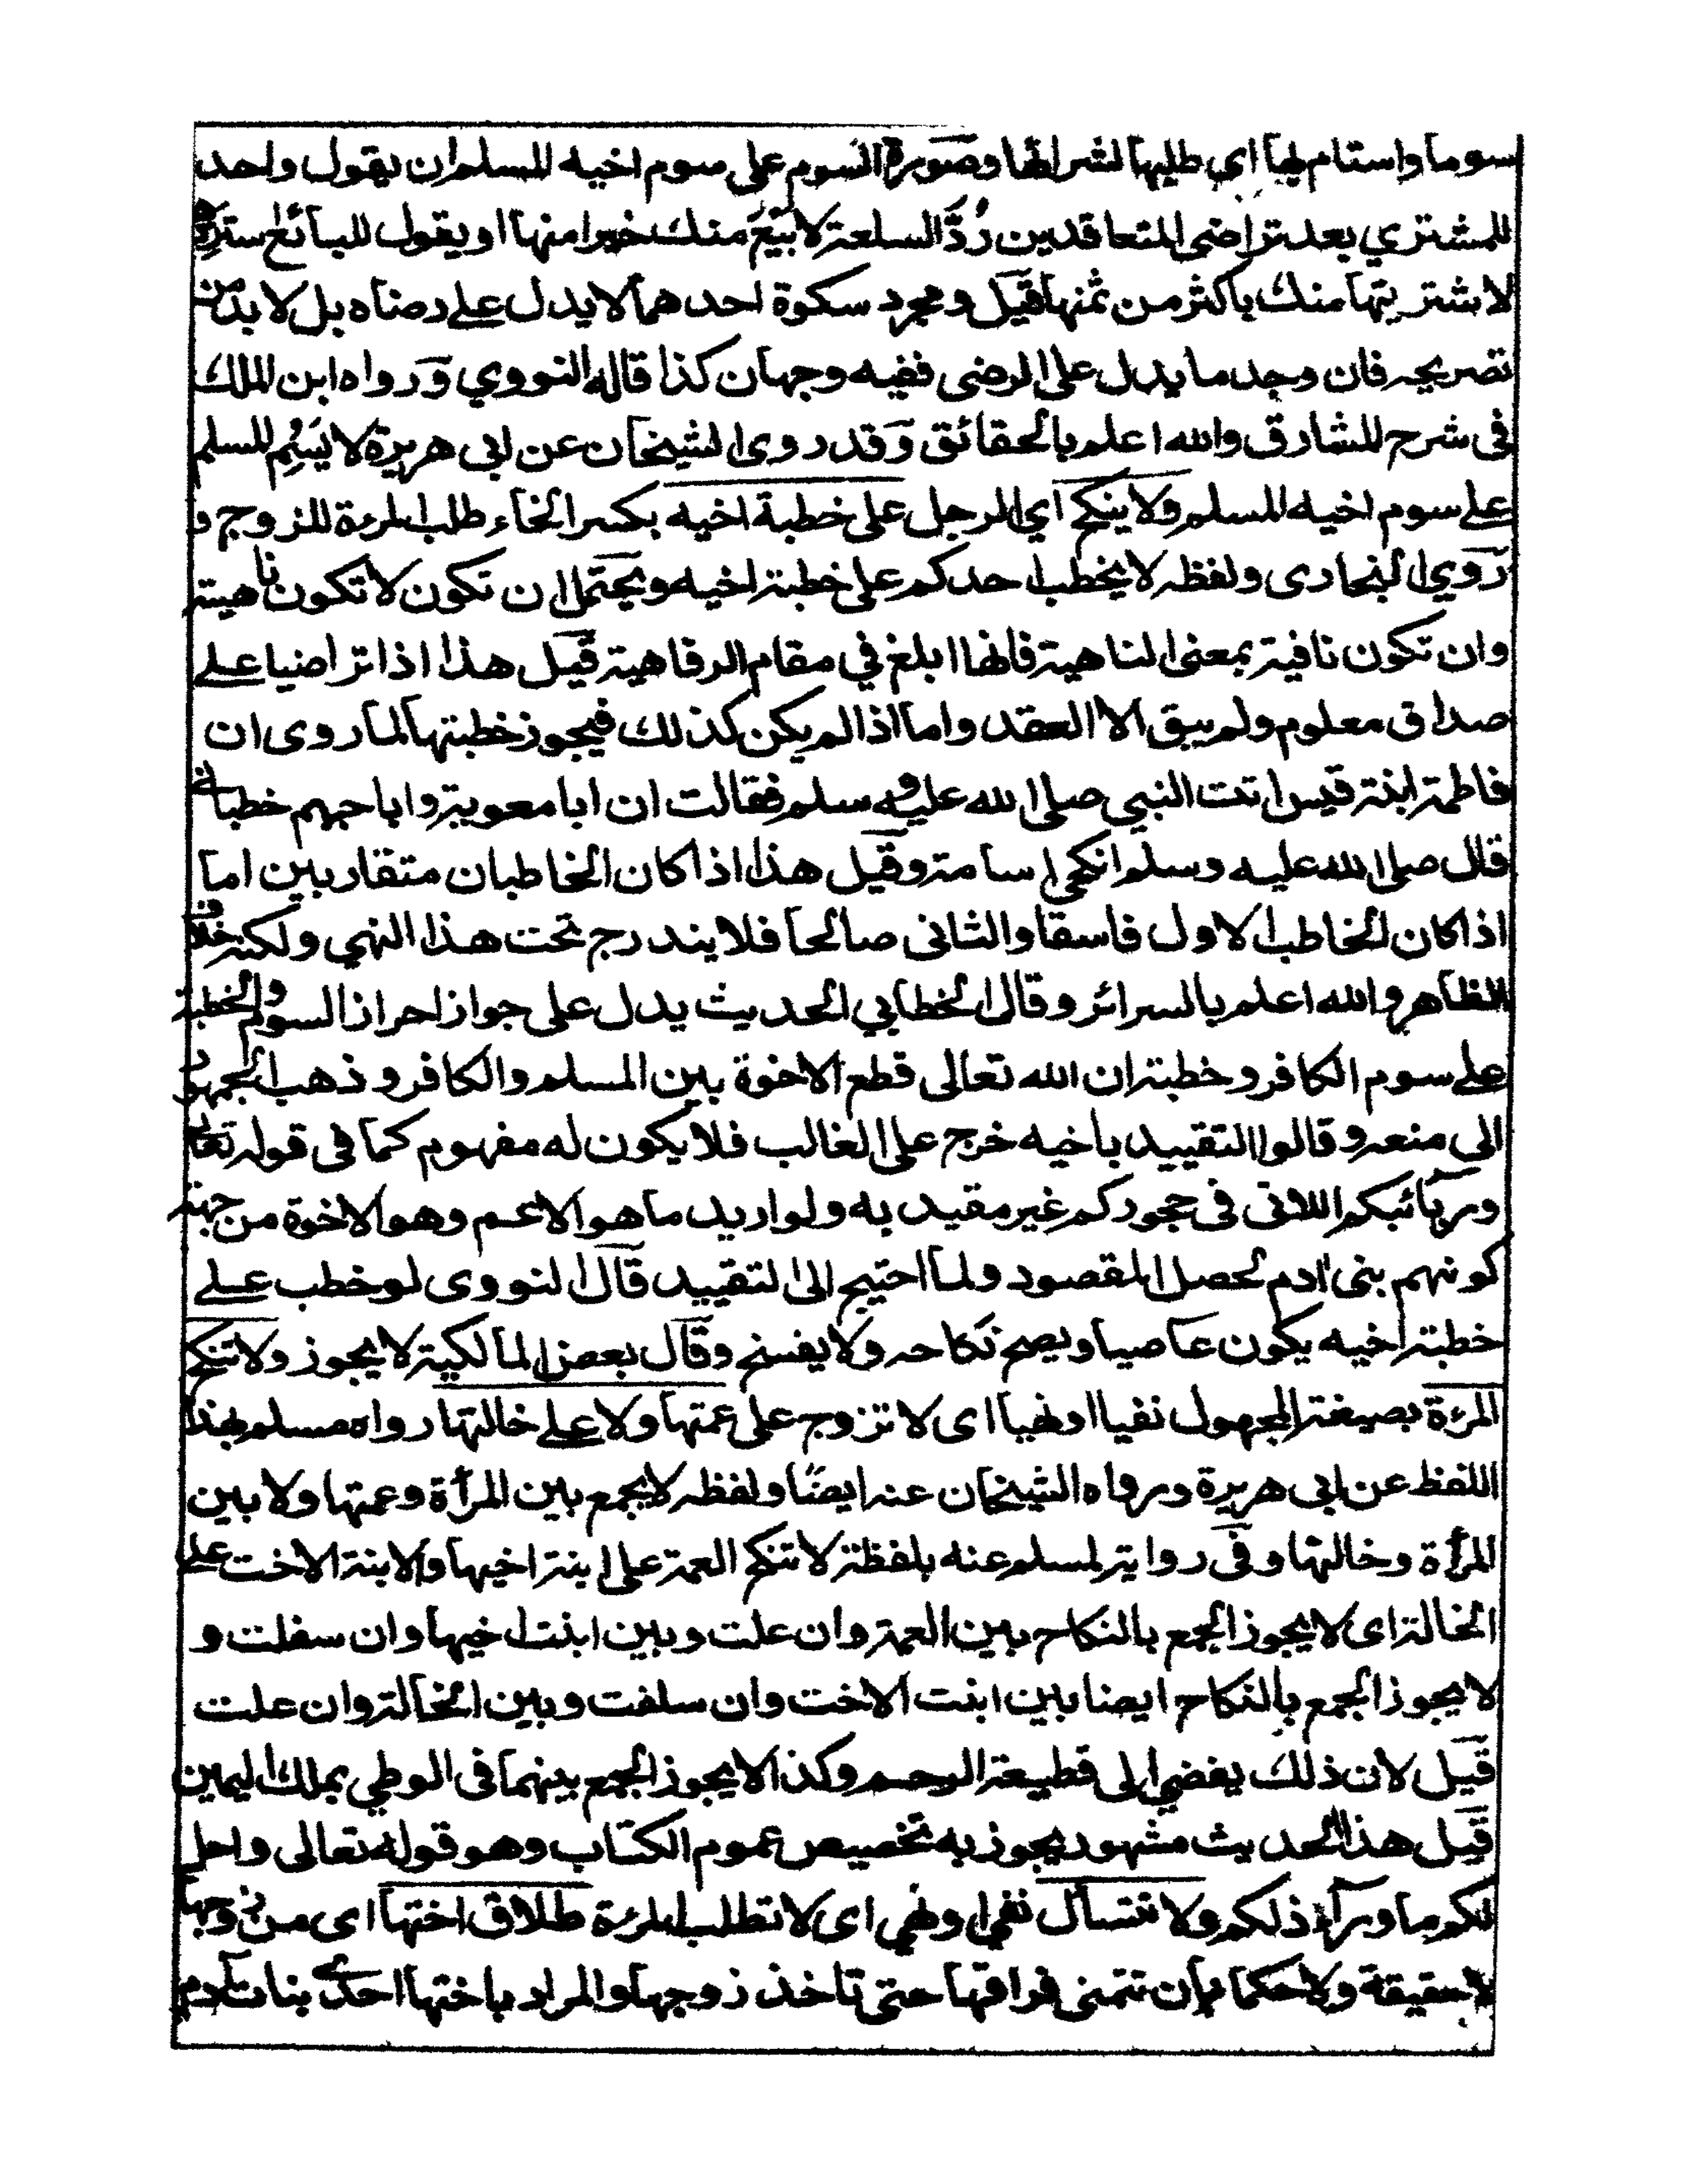 سوما واستام بها اى طلبها لشرائها وصورة السوم على سوم اخيه المسلم ان يقول واحد
للمشتري بعد تراضى المتعاقدين رُدَّ السلعة لابَيْعَ منك خيرا منها او يقول للبائع استرده
لاشتريتها منك باكثر من ثمنها قيل ومجرد سكوة احدهما لا يدل على رضاه بل لا بد من
تصريحه فان وجد ما يدل على الرضى ففيه وجهان كذا قاله النووي ورواه ابن الملك
فى شرح المشارق والله اعلم بالحقائق وقد روى الشيخان عن ابى هريرة لا يَسُمِ المسلم
على سوم اخيه المسلم ولا ينكح اي الرجل على خطبة اخيه بكسر الخاء طلب المرءة للزوج و
روي البخارى ولفظه لا يخطب احدكم على خطبة اخيه ويحتمل ان تكون لا تكون ناهية
وان تكون نافية بمعنى الناهية فانها ابلغ في مقام الرفاهية قيل هذا اذا تراضيا على
صداق معلوم ولم يبق الا العقد واما اذا لم يكن كذلك فيجوز خطبتها لما روى ان
فاطمة ابنة قيس اتت النبي صلى الله عليه وسلم فقالت ان ابا معوية وابا جهم خطبانى
قال صلى الله عليه وسلم انكحى اسامة وقيل هذا اذا كان الخاطبان متقاربين اما
اذا كان الخاطب الاول فاسقا والثانى صالحا فلا يندرج تحت هذا النهي ولكنه خلاف
الظاهر والله اعلم بالسرائر وقال الخطابي الحديث يدل على جواز احراز السوم والخطبة
على سوم الكافر وخطبة ان الله تعالى قطع الاخوة بين المسلم والكافر وذهب الجمهور
الى منعه وقالوا التقييد باخيه خرج على الغالب فلا يكون له مفهوم كما فى قوله تعالى
وربائبكم اللاتى فى حجوركم غير مقيد به ولو اريد ما هو الاعم وهو الاخوة من جهة
كونهم بنى ادم لحصل المقصود ولما احتيج الى التقييد قال النووى لو خطب على
خطبة اخيه يكون عاصيا ويصح نكاحه ولا يفسخ وقال بعض المالكية لا يجوز ولا تنكح
المرءة بصيغة المجهول نفيا او نهيا اى لا تزوج على عمتها ولا على خالتها رواه مسلم بهذا
اللفظ عن ابى هريرة ورواه الشيخان عنه ايضًا ولفظه لا يجمع بين المرأة وعمتها ولا بين
المرأة وخالتها وفى رواية لمسلم عنه بلفظة لا تنكح العمة على ابنة اخيها ولا ابنة الاخت على
الخالة اى لا يجوز الجمع بالنكاح بين العمة وان علت وبين ابنت اخيها وان سفلت و
لا يجوز الجمع بالنكاح ايضا بين ابنت الاخت وان سلفت وبين الخالة وان علت
قيل لان ذلك يفضي الى قطيعة الرحم وكذا لا يجوز الجمع بينهما فى الوطي بملك اليمين
قيل هذا الحديث مشهور يجوز به تخصيص عموم الكتاب وهو قوله تعالى واحل
لكم ما ورآء ذلكم ولا تتسأل نفى او نهي اى لا تطلب المرءة طلاق اختها اى من زوجها
لا حقيقة ولا حكما بان تتمنى فراقها حتى تاخذ زوجها والمراد باختها احدى بنات آدم